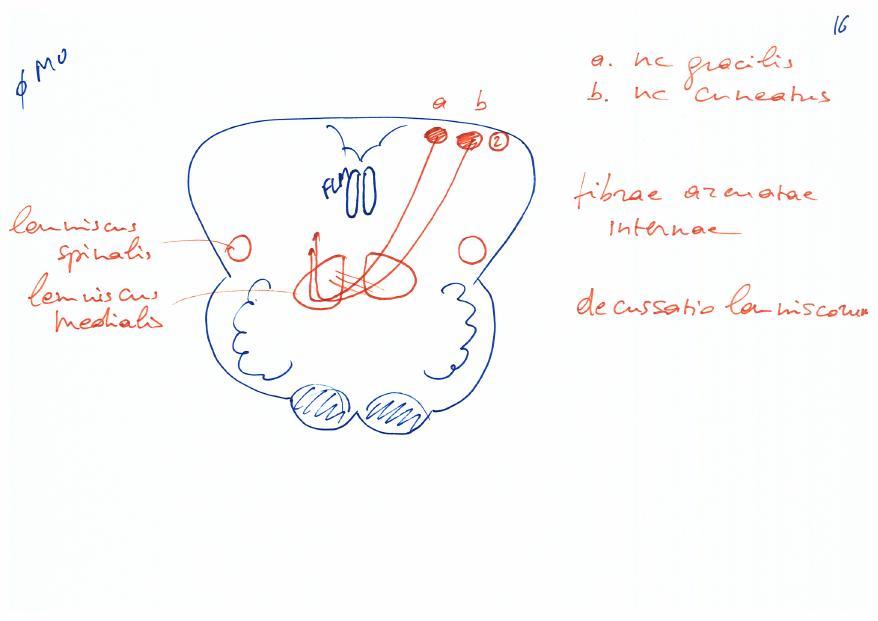 16
ϕ MO
a. nc gracilis
b. nc cuneatus
a b
2
FLM
fibrae arcuatae
internae
lemniscus
spinalis
lemniscus
medialis
decussatio lemniscorum